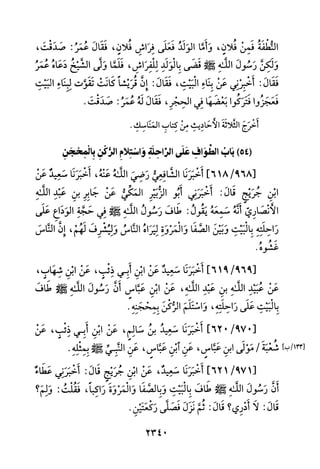 النُّطْفَةُ فَمِنْ فُلَانٍ، وَأَمَّا الوَلَدُ فَعَلَى فِرَاشِ فُلَانٍ، فَقَالَ عُمَرُ: صَدَقْتَ،
وَلَكِنَّ رَسُولَ اللَّهِ ﷺ قَضَى بِالْوَلَدِ لِلْفِرَاشِ، فَلَمَّا وَلَّى الشَّيْخُ دَعَاهُ عُمَرُ
فَقَالَ: أَخْبِرْنِي عَنْ بِنَاءِ الْبَيْتِ، فَقَالَ: إِنَّ قُرَيْشاً كَانَتْ تَقَوَّتْ لِبِنَاءِ البَيْتِ
فَعَجَزُوا فَتَرَكُوا بَعْضَهَا فِي الحِجْرِ، فَقَالَ لَهُ عُمَرُ: صَدَقْتَ.
أَخْرَجَ الثَّلَاثَةَ الأَحَادِيثَ مِنْ كِتَابِ المَنَاسِكِ.
(٥٤) بَابُ الطَّوَافِ عَلَى الرَّاحِلَةِ وَاسْتِلَامِ الرُّكْنِ بِالْمِحْجَنِ
[٦١٨/٩٦٨] أَخْبَرَنَا الشَّافِعِيُّ رَضِيَ اللَّهُ عَنْهُ، أَخْبَرَنَا سَعِيدٌ عَنْ
ابْنِ جُرَيْجٍ قَالَ: أَخْبَرَنِي أَبُو الزُّبَيْرِ المَكِّيُّ عَنْ جَابِرِ بْنِ عَبْدِ اللَّهِ
الأَنْصَارِيِّ أَنَّهُ سَمِعَهُ يَقُولُ: طَافَ رَسُولُ اللَّهِ ﷺ فِي حَجَّةِ الوَدَاعِ عَلَى
رَاحِلَتِهِ بِالْبَيْتِ وَبَيْنَ الصَّفَا وَالْمَرْوَةِ لِيَرَاهُ النَّاسُ وَلِيُشْرِفَ لَهُمْ، إِنَّ النَّاسَ
غَشُوهُ.
[٦١٩/٩٦٩] أَخْبَرَنَا سَعِيدٌ عَنْ ابْنِ أَبِي ذِئْبٍ، عَنْ ابْنِ شِهَابٍ،
عَنْ عُبَيْدِ اللَّهِ بنِ عَبْدِ اللَّهِ، عَنْ ابْنِ عَبَّاسٍ أَنَّ رَسُولَ اللَّهِ ﷺ طَافَ
بِالْبَيْتِ عَلَى رَاحِلَتِهِ، وَاسْتَلَمَ الرُّكْنَ بِمِحْجَنِهِ.
[٦٢٠/٩٧٠] أَخْبَرَنَا سَعِيدُ بنُ سَالِمٍ، عَنْ ابْنِ أَبِي ذِئْبٍ، عَنْ
[١٣٣/ب] شُعْبَةَ / مَوْلَى ابنِ عَبَّاسٍ، عَنْ ابْنِ عَبَّاسٍ، عَنِ النَّبِيِّ ﷺ بِمِثْلِهِ.
[٦٢١/٩٧١] أَخْبَرَنَا سَعِيدٌ، عَنْ ابْنِ جُرَيْجٍ قَالَ: أَخْبَرَنِي عَطَاءٌ
أَنَّ رَسُولَ اللَّهِ ﷺ طَافَ بِالْبَيْتِ وَبِالصَّفَا وَالْمَرْوَةِ رَاكِباً، فَقُلْتُ: وَلِمَ؟
قَالَ: لَا أَدْرِي؟ قَالَ: ثُمَّ نَزَلَ فَصَلَّى رَكْعَتَيْنِ.
٢٣٤٠